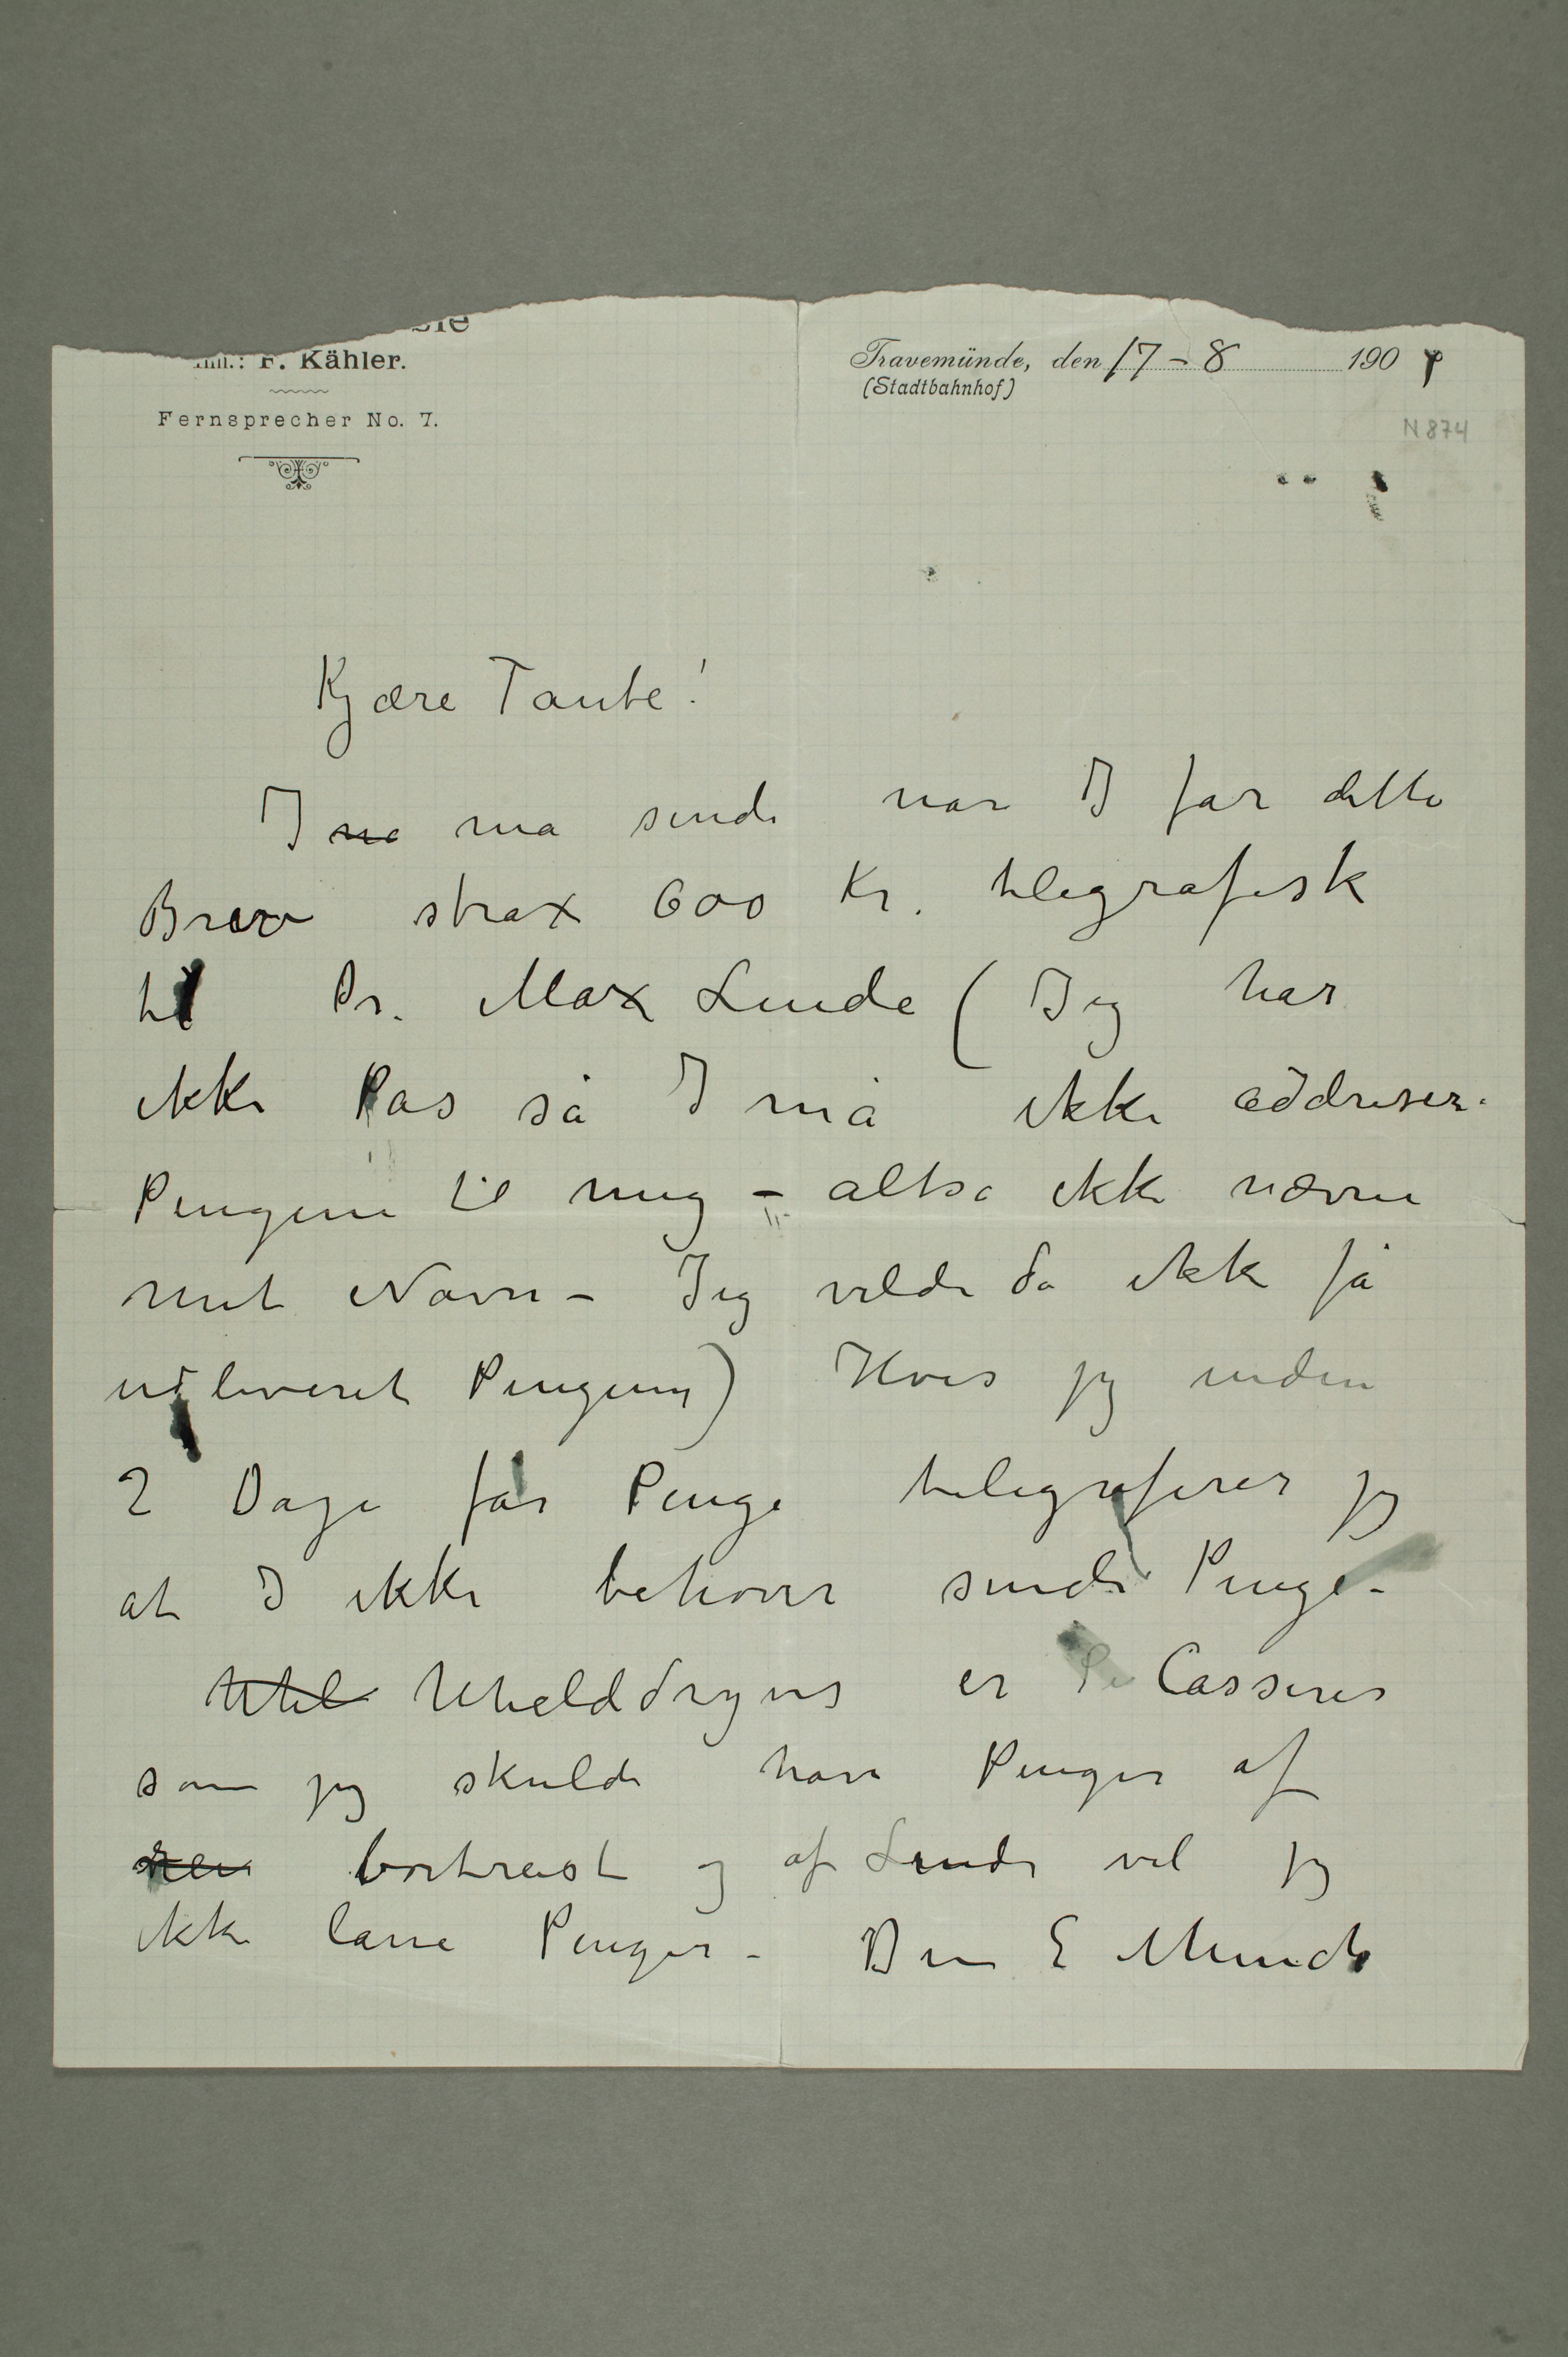 F. Kähler.
Fernsprecher No. 7.
Travemünde, den 17-8 190
(Stadtbahnhof)
N 874
Kjære Tante!
I ma sende nar I far dette
Brev strax 600 Kr. telegrafisk
til Dr. Max Linde (Jeg har
ikke Pas så I må ikke addresere
Pengene til mig – altsa ikke nævne
mit Navn – Jeg vilde da ikke få
udleveret Pengene) Hvis jeg inden
2 Dage får Penge telegraferer jeg
at I ikke behøver sende Penge –
Uheldigvis er Cassirer
som jeg skulde have Penger af
bortreist og af Linde vil jeg
ikke låne Penger – Din E Munch